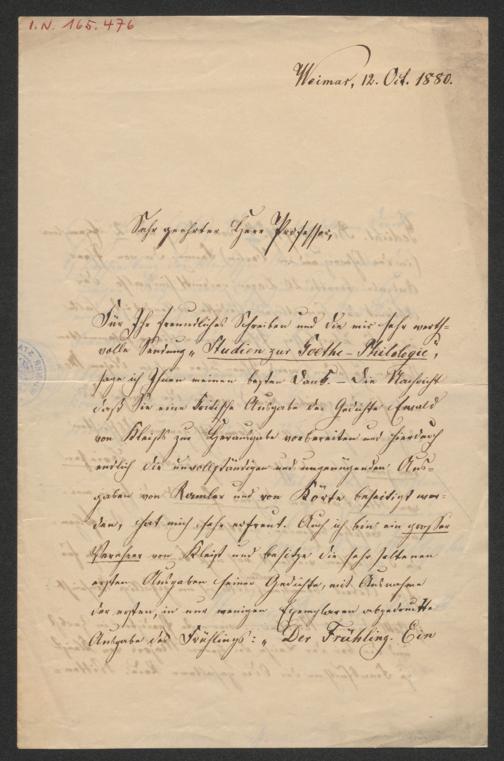 I.N. 165.476
Weimar, 12. Oct. 1880.
Sehr geehrter Herr Professor,
Für Ihr freundliches Schreiben und die mir sehr werth-
volle Sendung „Studien zur Goethe-Philologie“,
sage ich Ihnen meinen besten Dank. – Die Nachricht
daß Sie eine kritische Ausgabe der Gedichte Ewald
von Kleists zur Herausgabe vorbereiten und hierdurch
endlich die unvollständigen und ungenügenden Aus-
gaben von Ramler und von Körte beseitigt wer-
den, hat mich sehr erfreut. Auch ich bin ein großer
Verehrer von Kleist und besitze die sehr seltenen
ersten Ausgaben seiner Gedichte, mit Ausnahme
der ersten, in nur wenigen Exemplaren abgedruckte
Ausgabe des Frühlings: „Der Frühling. Ein